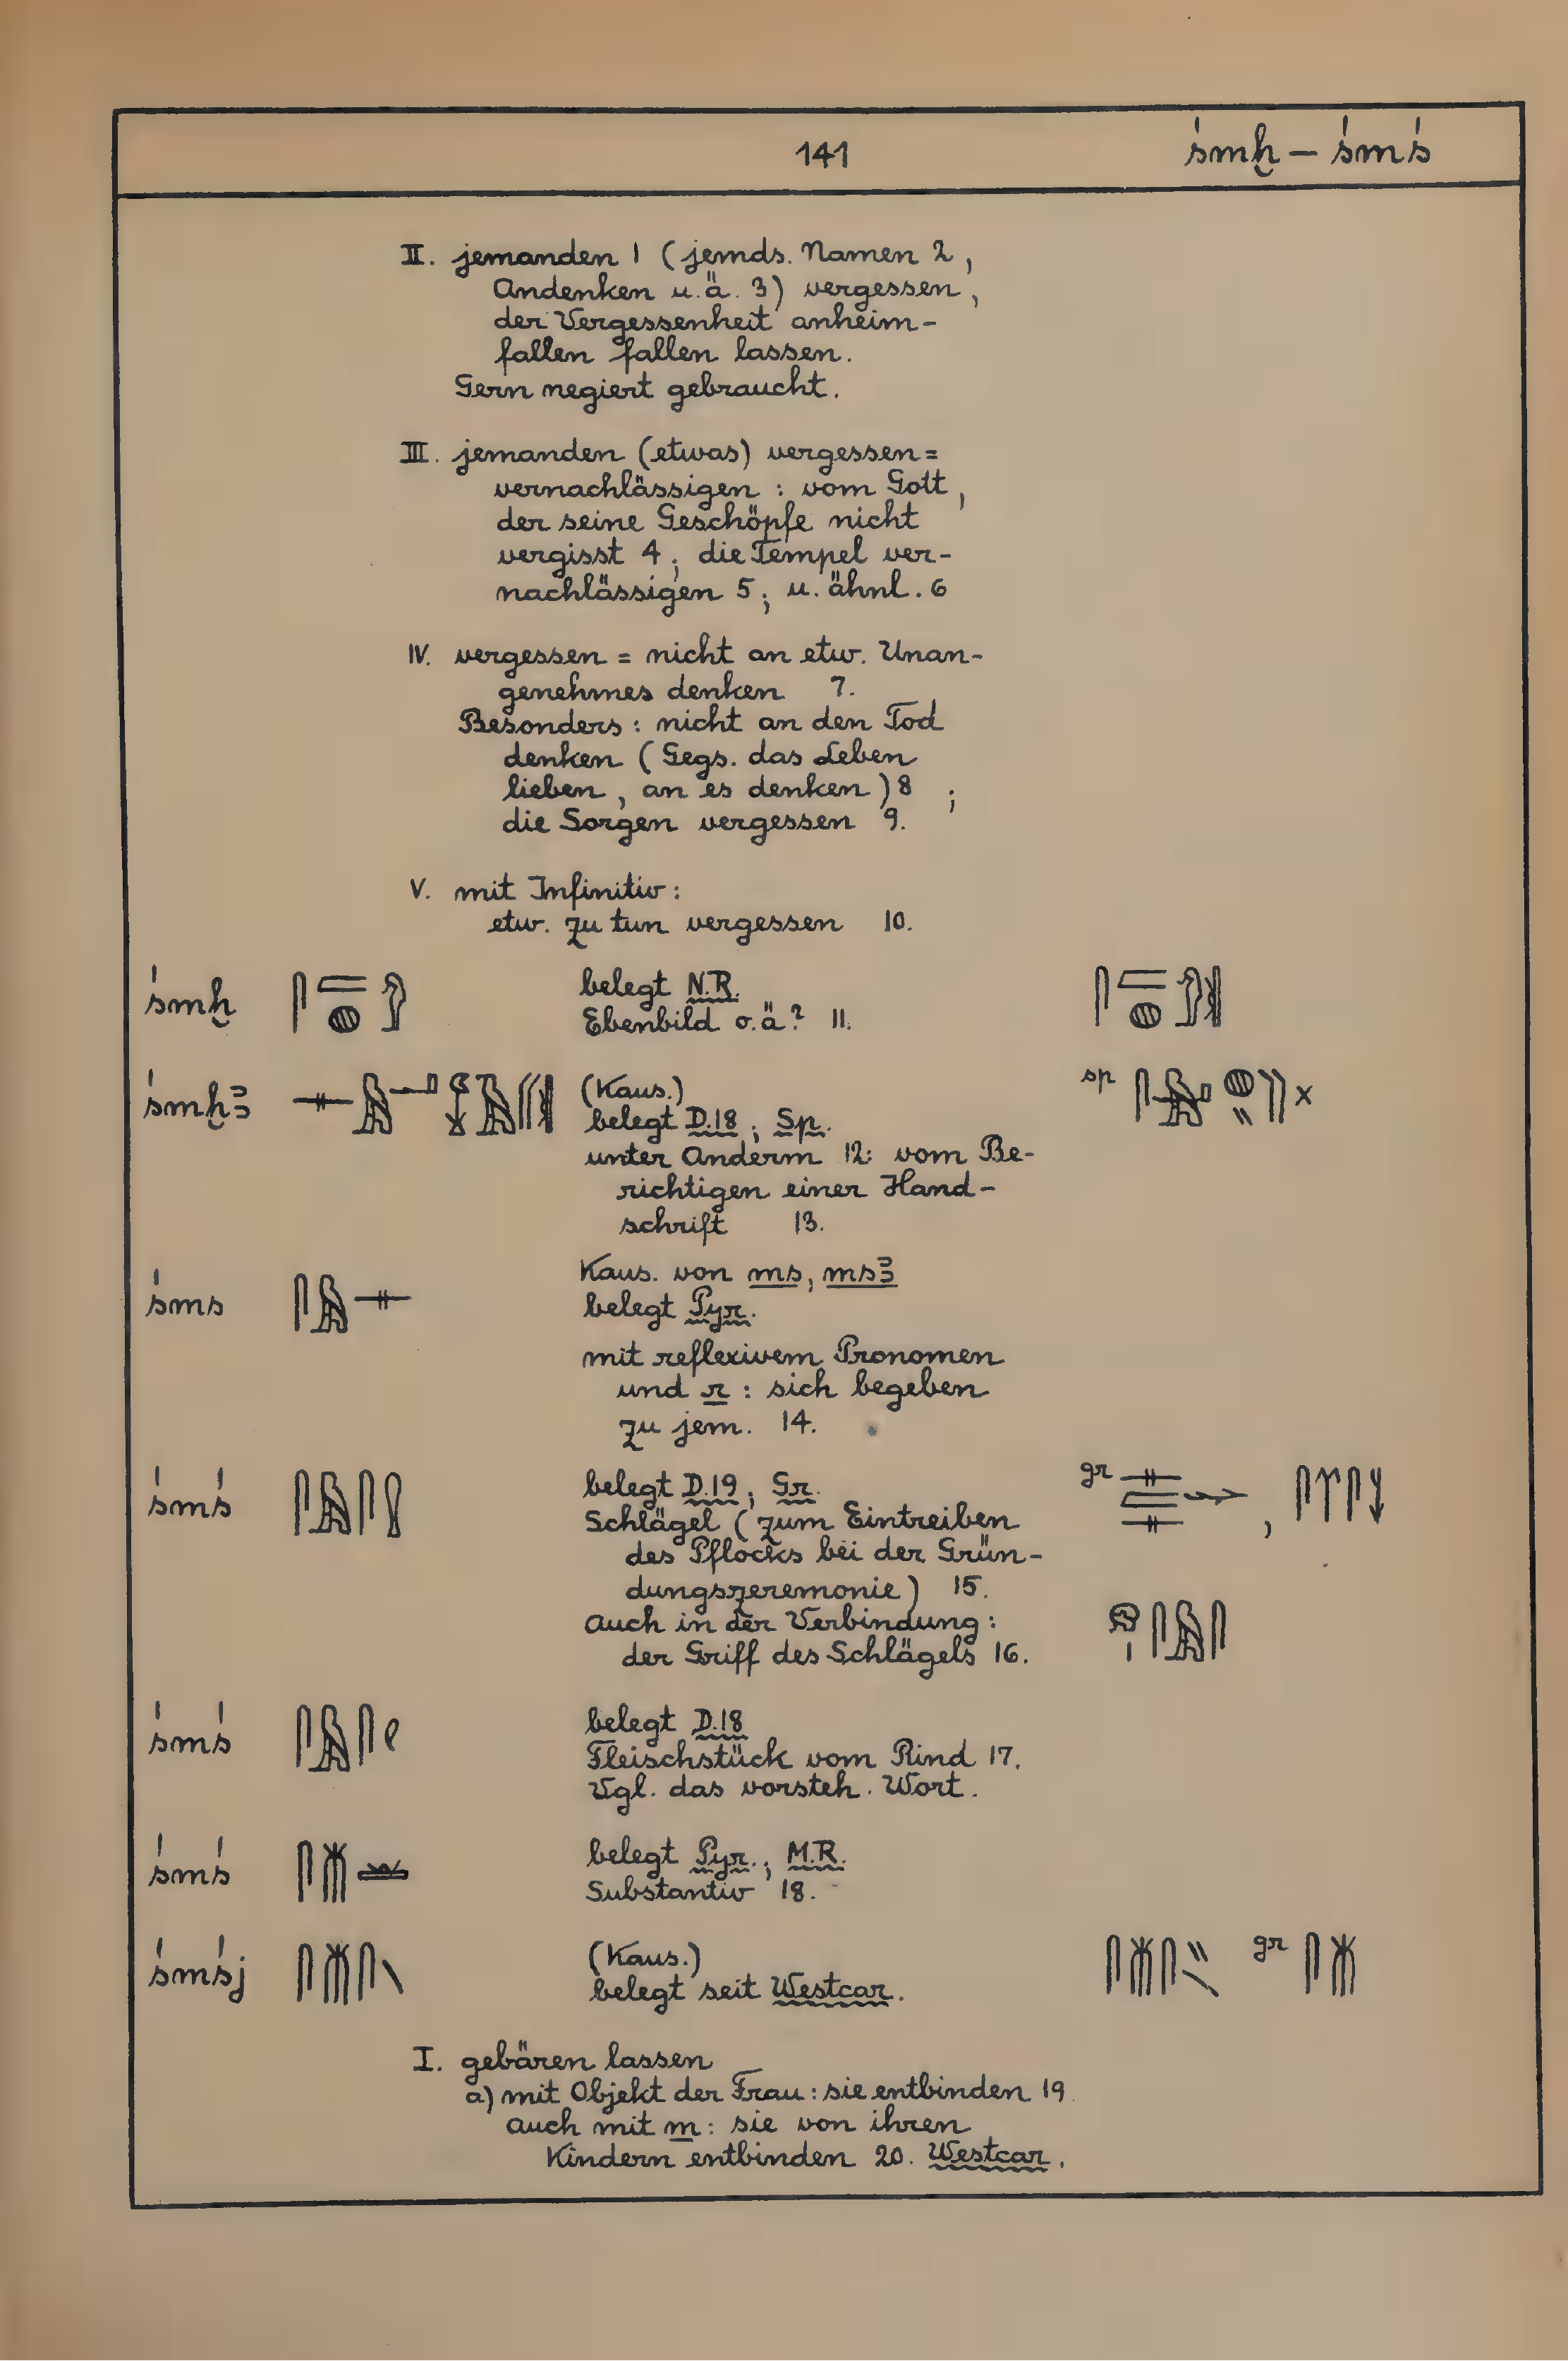 141 śmḫ – śmś
II. jemanden 1 (jemds. Namen 2,
Andenken u.ä. 3) vergessen,
der Vergessenheit anheim-
fallen fallen lassen.
Gern negiert gebraucht.
III. jemanden (etwas) vergessen =
vernachlässigen : vom Gott,
der seine Geschöpfe nicht
vergisst 4; die Tempel ver-
nachlässigen 5; u. ähnl. 6
IV. vergessen = nicht an etw. Unan-
genehmes denken 7.
Besonders : nicht an den Tod
denken (Gegs. das Leben
lieben, an es denken) 8 ;
die Sorgen vergessen 9.
V. mit Infinitiv :
etw. zu tun vergessen 10.
śmḫ belegt N.R.
Ebenbild o.ä? 11.
śmḫꜣ (Kaus.) sp
belegt D.18; Sp.
unter Anderm 12: vom Be-
richtigen einer Hand-
schrift 13.
śms Kaus. von ms, msꜣ
belegt Pyr.
mit reflexivem Pronomen
und r : sich begeben
zu jem. 14.
śmś belegt D.19; Gr. gr ,
Schlägel (zum Eintreiben
des Pflocks bei der Grün-
dungszeremonie) 15.
Auch in der Verbindung :
der Griff des Schlägels 16.
śmś belegt D.18
Fleischstück vom Rind 17.
Vgl. das vorsteh. Wort.
śmś belegt Pyr.; M.R.
Substantiv 18.
śmśj (Kaus.) gr
belegt seit Westcar.
I. gebären lassen
a) mit Objekt der Frau : sie entbinden 19.
auch mit m : sie von ihren
Kindern entbinden 20. Westcar.